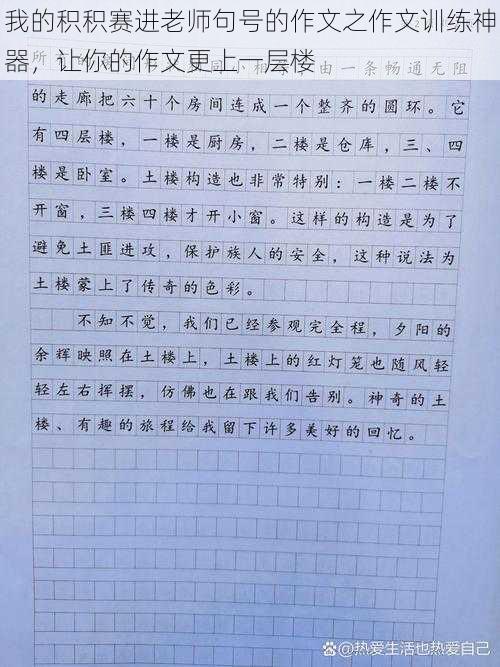 我的积积赛进老师句号的作文之作文训练神
器，让你的作文更上一层楼
同小相
由一条畅通无阻
的走廊把六十个房间连成一个整齐的圆环。它
有四层楼，一楼是厨房，二楼是仓库，三、四
楼是卧室。土楼构造也非常特别：一楼二楼不
开窗，三楼四楼才开小窗。这样的构造是为了
避免土匪进攻，保护族人的安全，这种说法为
土楼蒙上了传奇的色彩。
不知不觉，我们已经参观完全程，夕阳的
余辉映照在土楼上，土楼上的红灯笼也随风轻
轻左右挥摆，仿佛也在跟我们告别。神奇的土
楼、有趣的旅程给我留下许多美好的回忆。
@热爱生活也热爱自己